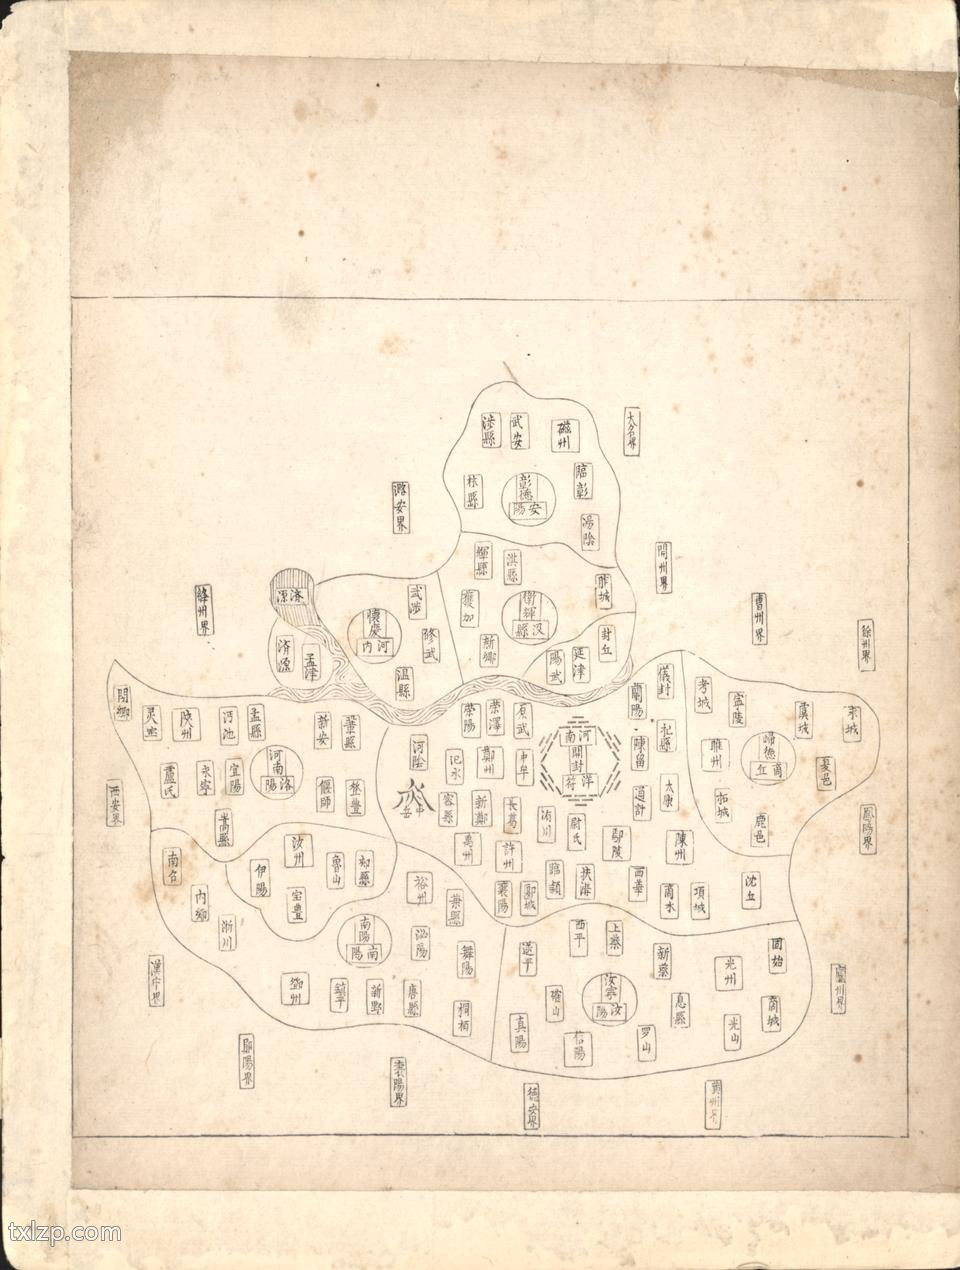 大名界
涉縣
武安
磁州
林縣
彰德
安陽
臨彰
湯陰
潞安界
輝縣
淇縣
胙城
開州界
曹州界
徐州界
絳州界
濟源
濟源
孟津
懷慶
河内
武涉
修武
温縣
獲加
新鄉
衛輝
汲縣
封丘
延津
陽武
閿鄉
灵宝
陝州
沔池
孟縣
新安
鞏縣
盧氏
永寧
宜陽
河南
洛陽
偃師
登豐
嵩縣
西安界
河陰
滎陽
滎澤
原武
汜水
鄭州
中牟
中岳
密縣
新鄭
長葛
洧川
禹州
許州
襄陽
郾城
臨頴
扶溝
尉氏
河南
開封
祥符
蘭陽
儀封
陳留
杞縣
通許
太康
鄢陵
陳州
西華
商水
項城
沈丘
考城
寧陵
睢州
柘城
歸德
商丘
鹿邑
虞城
夏邑
永城
鳳陽界
汝州
伊陽
魯山
郟縣
宝豊
南召
内鄉
淅川
裕州
葉縣
南陽
南陽
泌陽
舞陽
鄧州
鎮平
新野
唐縣
桐栢
漢中界
鄖陽界
襄陽界
德安界
西平
上蔡
遂平
新蔡
汝寧
汝陽
確山
真陽
信陽
罗山
息縣
光州
光山
固始
商城
廬州界
txlzp.com